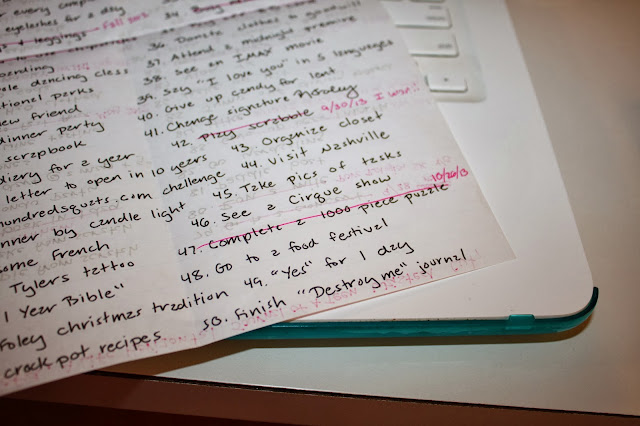 every comp
eyelashes for a day
leggings Fall 2012
pending
ole dancing class
tional parks
new friend
dinner party
scrapbook
diary for a year
letter to open in 10 years
hundredsquats.com challenge
nner by candle light
ome French
Tylers tattoo
1 Year Bible"
Foley christmas tradition
crock pot recipes
34.
36. Donate clothes to goodwill
37. Attend a midnight premire
38. See an IMAX movie
39. Say "I love you" in 5 languages
40. Give up candy for lent
41. Change signature
42. Play scrabble 9/30/13 I won!!
43. Organize closet
44. Visit Nashville
45. Take pics of tasks
46. See a Cirque show
47. Complete a 1000 piece puzzle 10/26/13
48. Go to a food festival
49. "Yes" for 1 day
50. Finish "Destroy me" journal